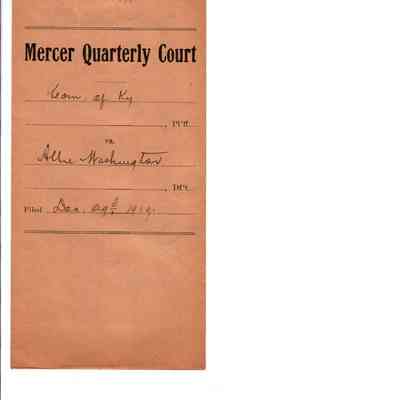 Mercer Quarterly Court
Com. of Ky
, Pltff.
vs.
Allie Washington
, Dft.
Filed Dec. 29th 1919.